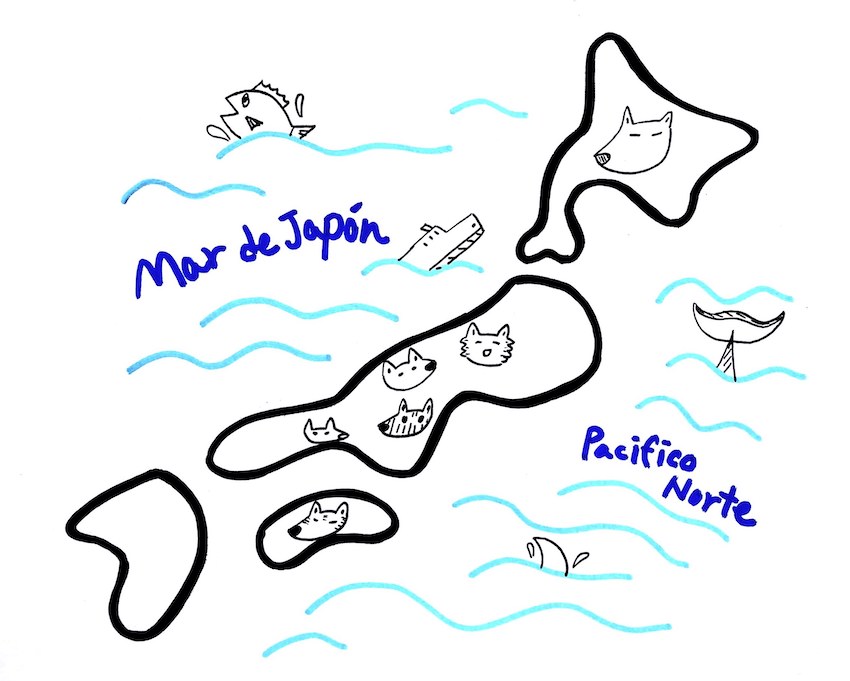 Mar de Japón
Pacifico
Norte